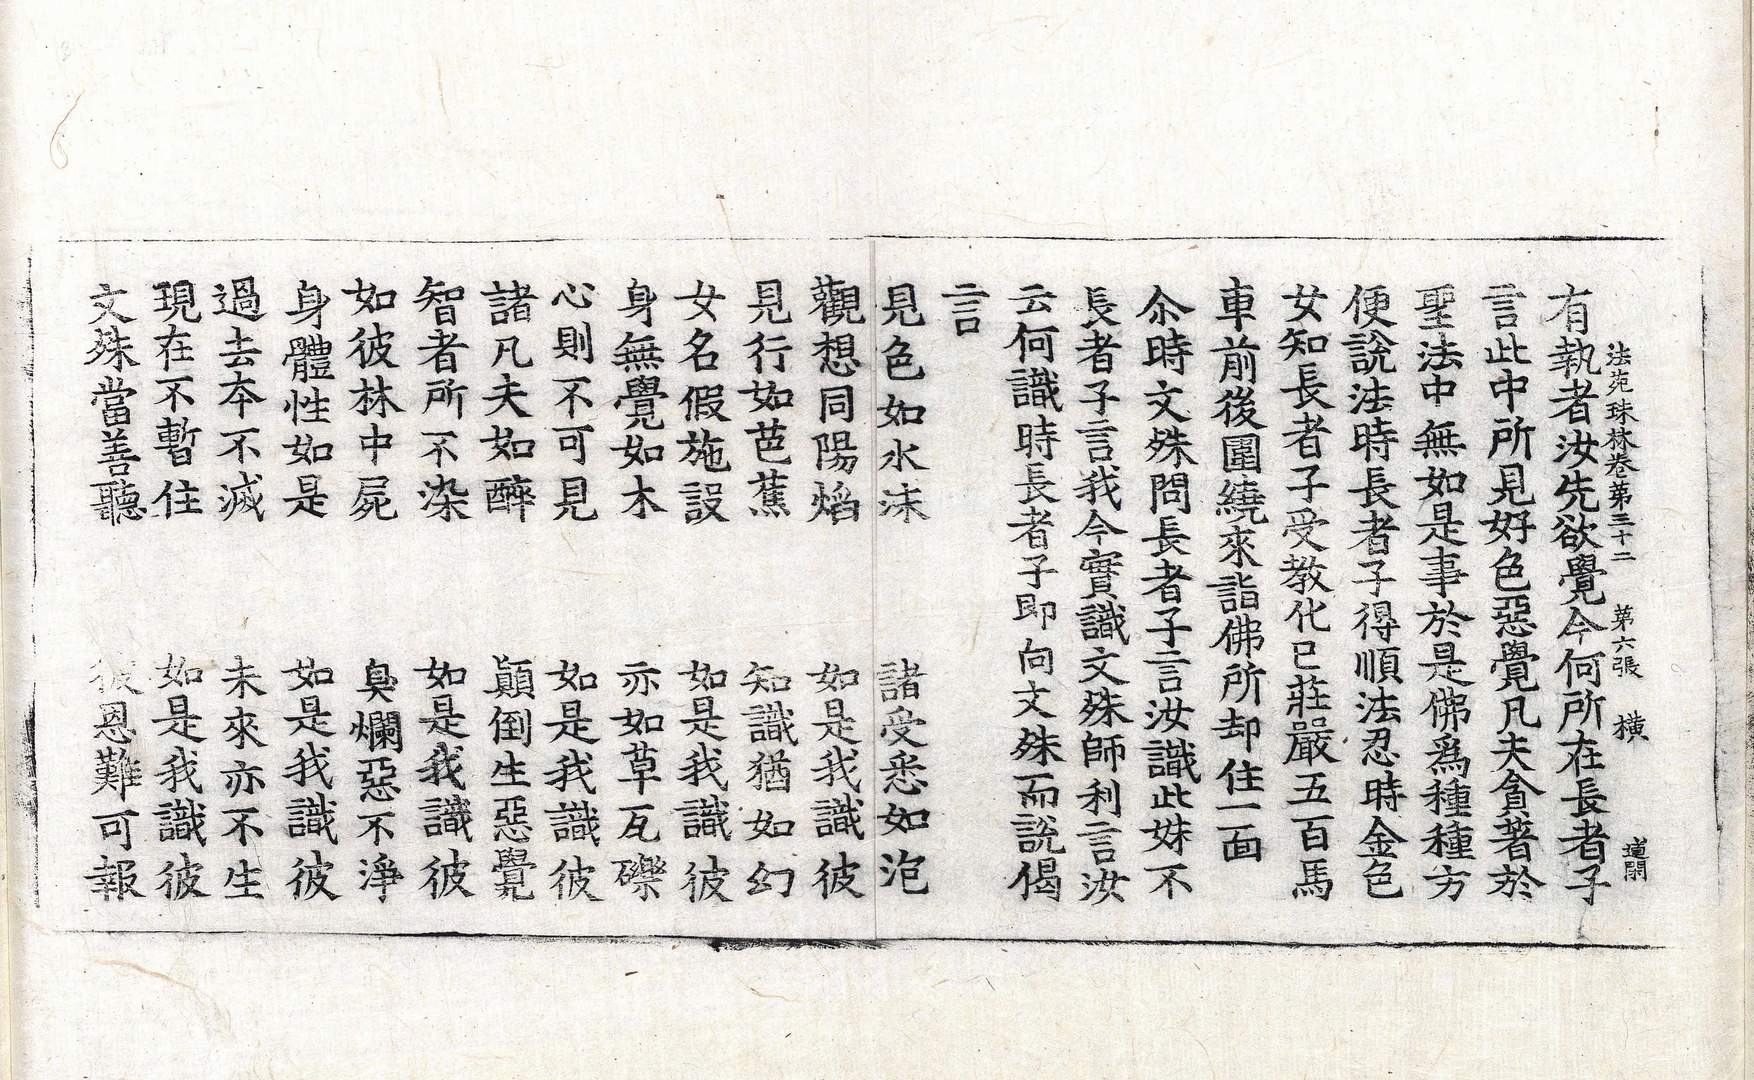 法苑珠林卷第三十二 第六張 橫
有執者汝先欲覺今何所在長者子
言此中所見好色惡覺凡夫貪著於
聖法中無如是事於是佛爲種種方
便說法時長者子得順法忍時金色
女知長者子受教化已莊嚴五百馬
車前後圍繞來詣佛所却住一面
尒時文殊問長者子言汝識此姝不
長者子言我今實識文殊師利言汝
云何識時長者子即向文殊而說偈
言
見色如水沫 諸受悉如泡
觀想同陽焰 如是我識彼
見行如芭蕉 知識猶如幻
女名假施設 如是我識彼
身無覺如木 亦如草瓦礫
心則不可見 如是我識彼
諸凡夫如醉 顛倒生惡覺
智者所不染 如是我識彼
如彼林中屍 臭爛惡不淨
身體性如是 如是我識彼
過去本不滅 未來亦不生
現在不暫住 如是我識彼
文殊當善聽 彼恩難可報